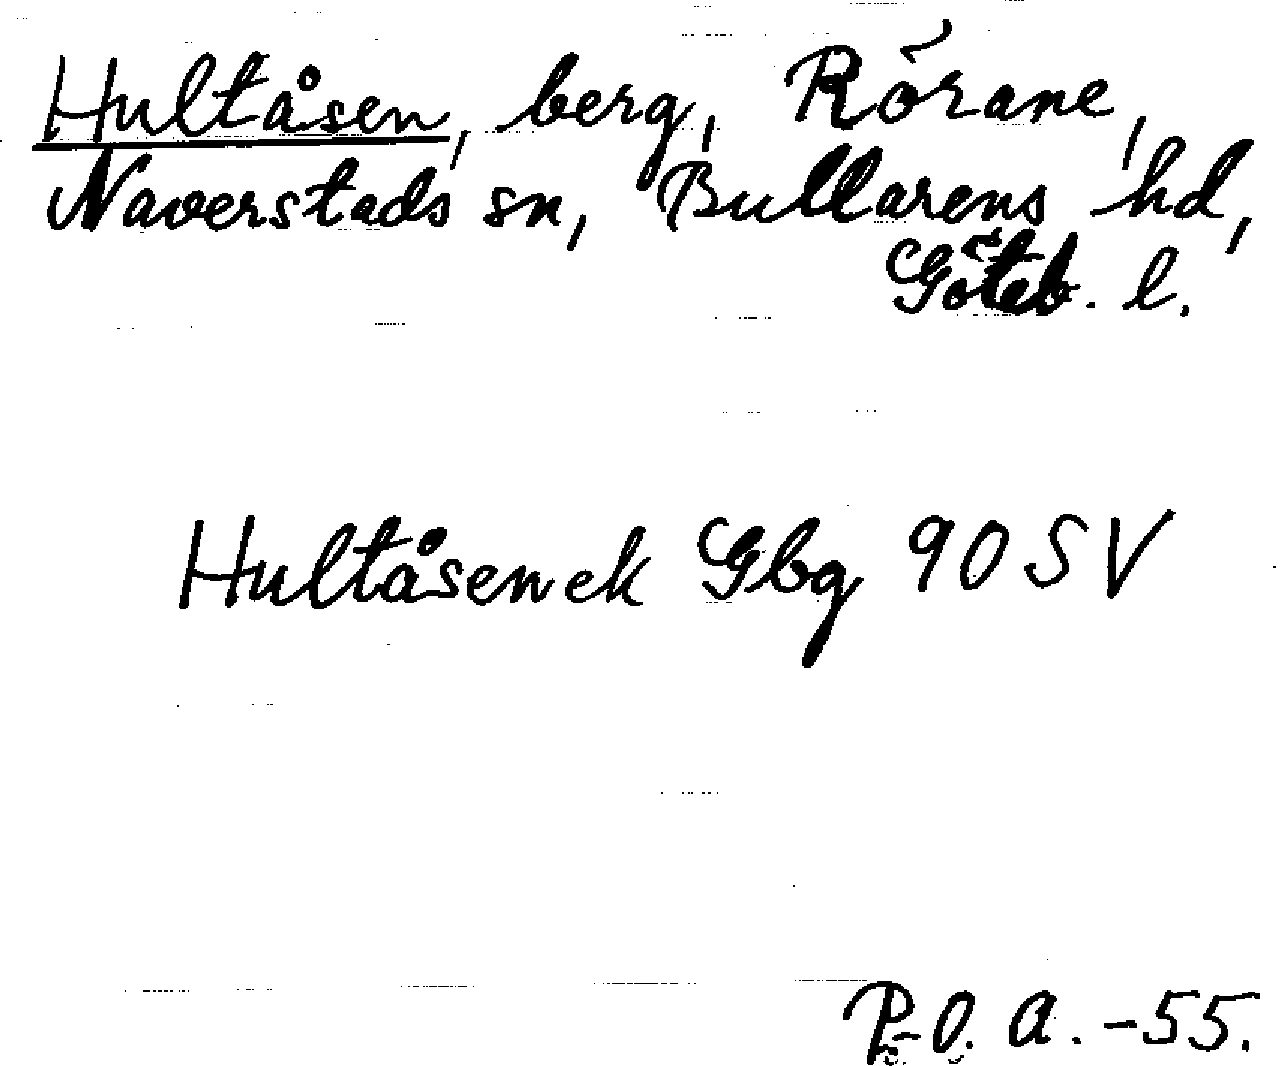 Hultåsen, berg, Rörane,
Naverstads sn, Bullarens hd,
Göteb. l.
Hultåsen ek Gbg 90 SV
P.O.A. -55.